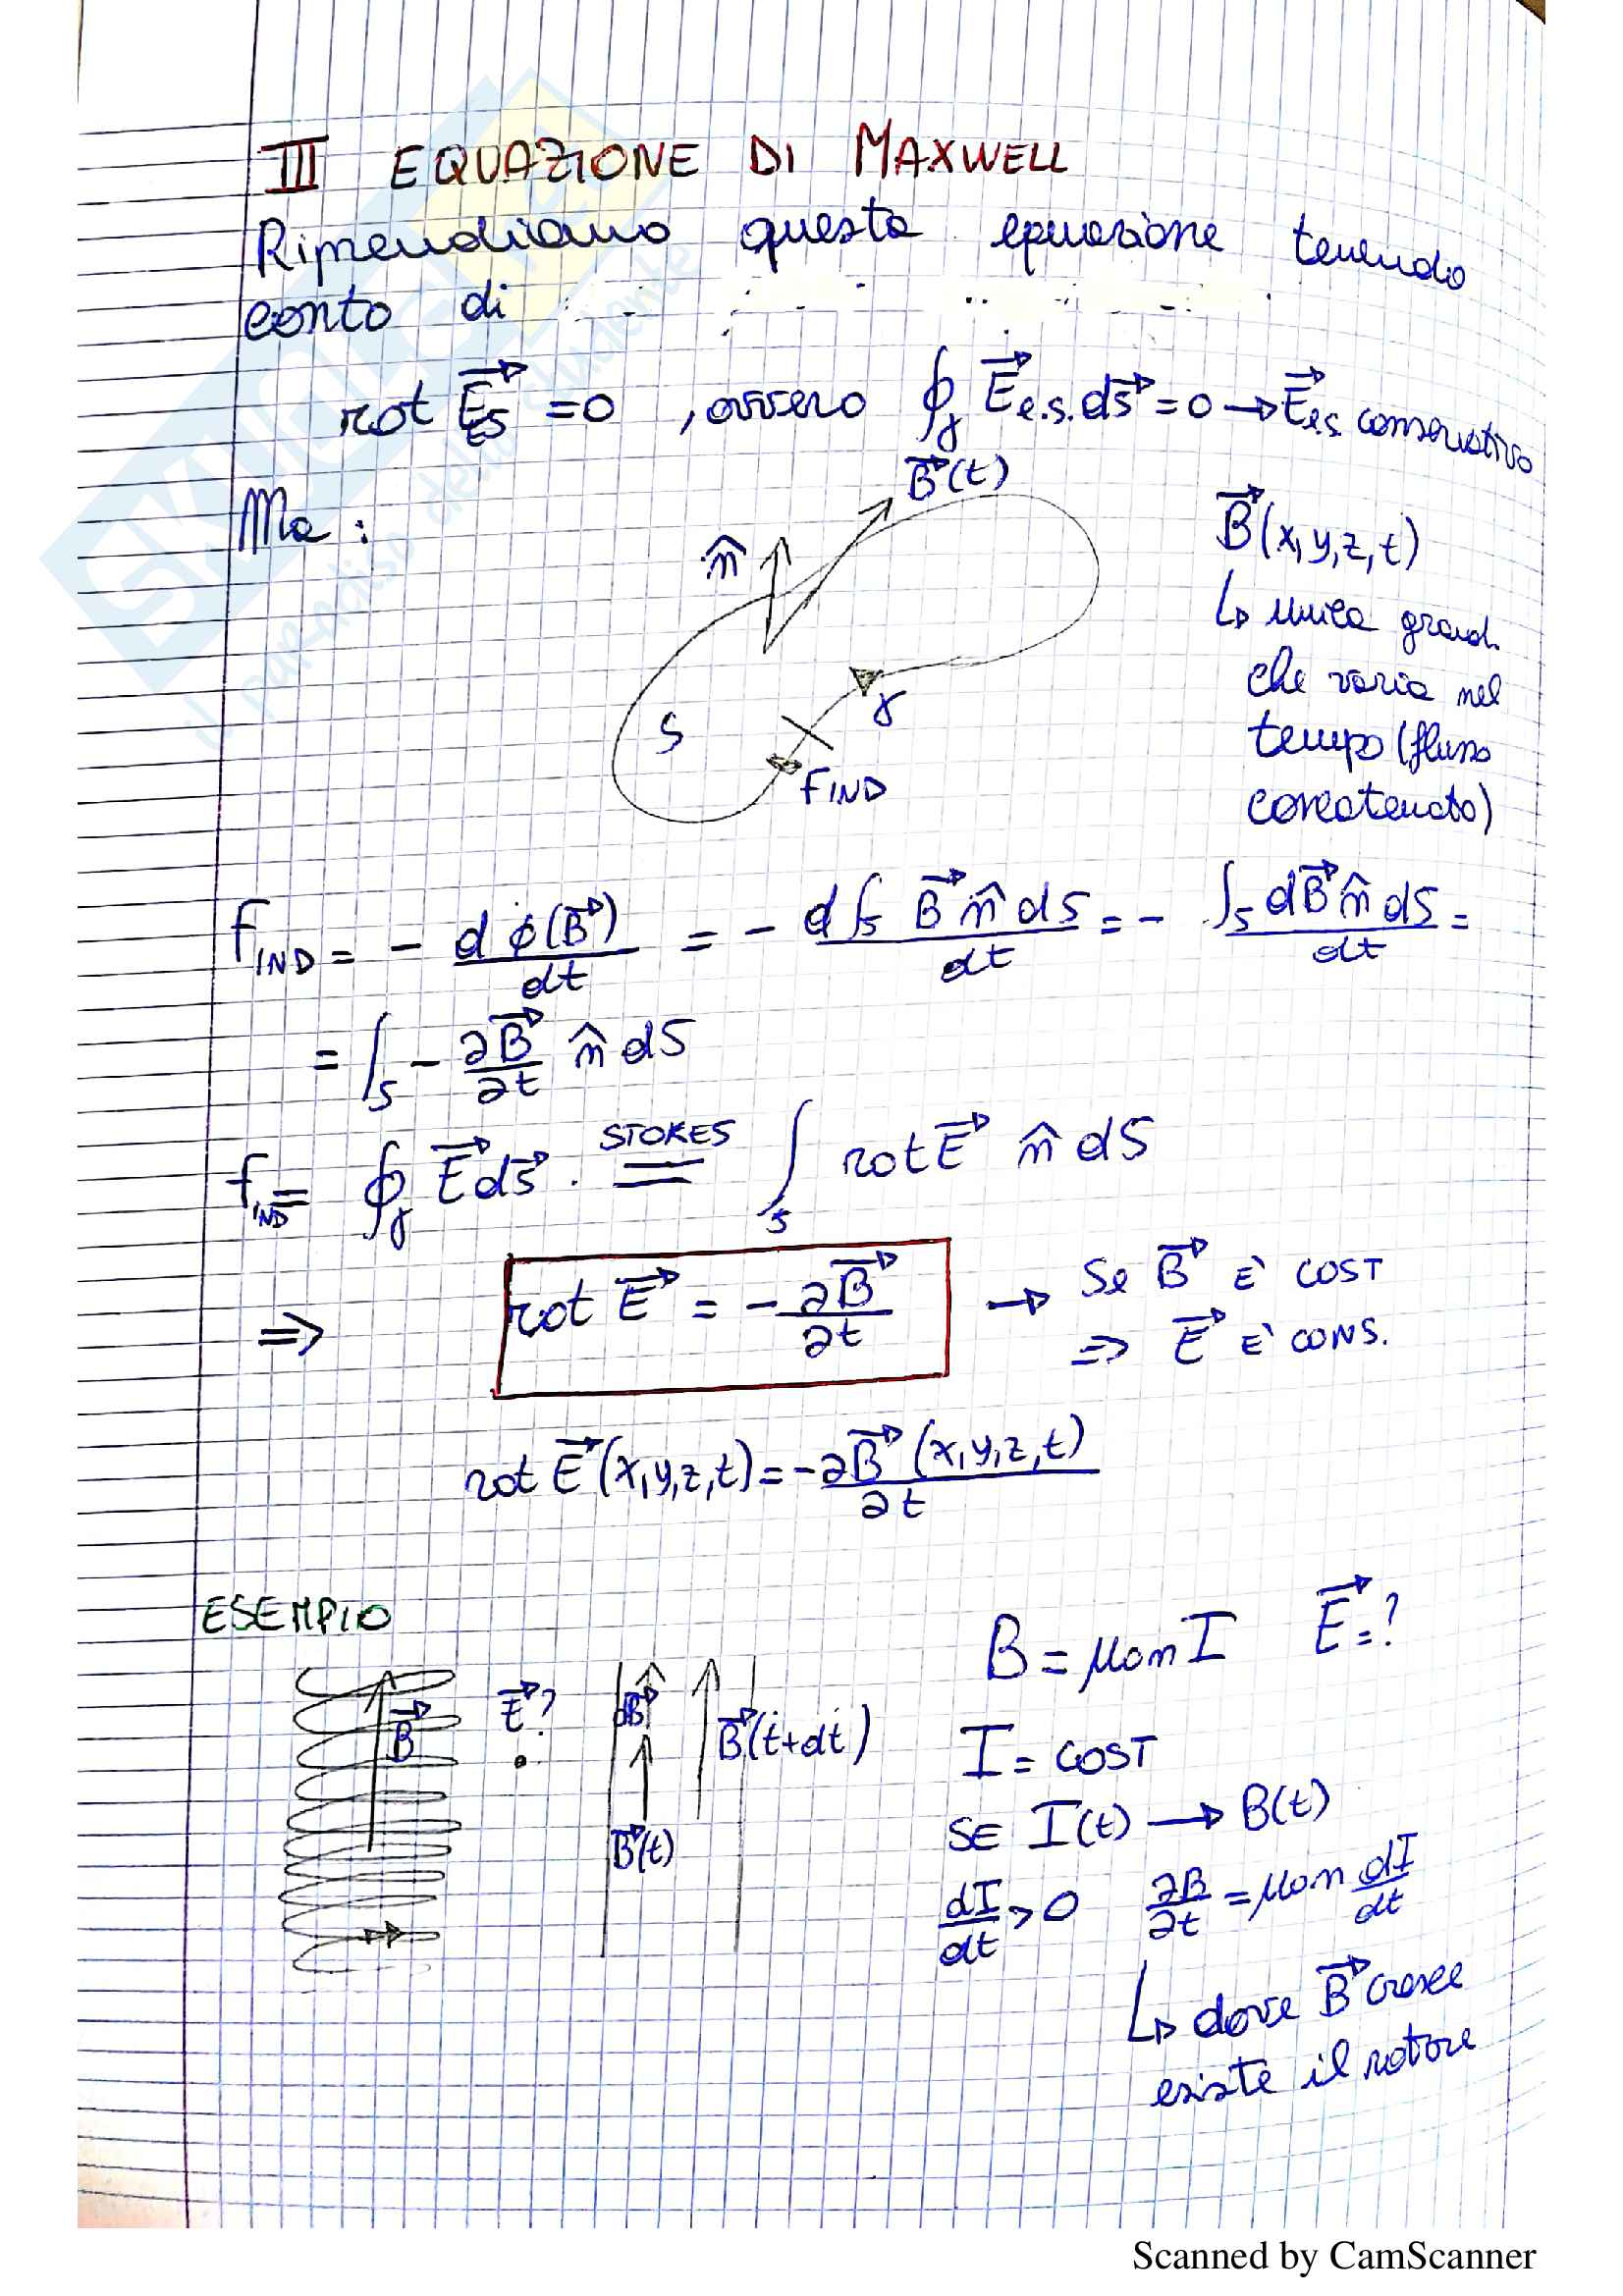 III EQUAZIONE DI MAXWELL
Riprendiamo questa equazione tenendo
conto di
rot E⃗_ES = 0 , ovvero ∮_γ E⃗_e.s. ds⃗ = 0 → E⃗_e.s. conservativo
Ma :
B⃗(t)
n̂
S
γ
fIND
B⃗(x,y,z,t)
↳ unica grand.
che varia nel
tempo (flusso
concatenato)
f_IND = - dϕ(B⃗)/dt = - d∫_S B⃗ n̂ dS/dt = - ∫_S dB⃗ n̂ dS/dt =
= ∫_S - ∂B⃗/∂t n̂ dS
f_IND = ∮_γ E⃗ ds⃗ . STOKES = ∫_S rot E⃗ n̂ dS
⇒ rot E⃗ = - ∂B⃗/∂t → Se B⃗ E' COST
⇒ E⃗ E' CONS.
rot E⃗(x,y,z,t) = - ∂B⃗(x,y,z,t)/∂t
ESEMPIO
B⃗
E⃗?
dB⃗
B⃗(t)
B⃗(t+dt)
B = μ₀nI E⃗ = ?
I = COST
SE I(t) → B(t)
dI/dt > 0 ∂B/∂t = μ₀n dI/dt
↳ dove B⃗ cresce
esiste il rotore
SKUOLA
il paradiso dello studente
Scanned by CamScanner